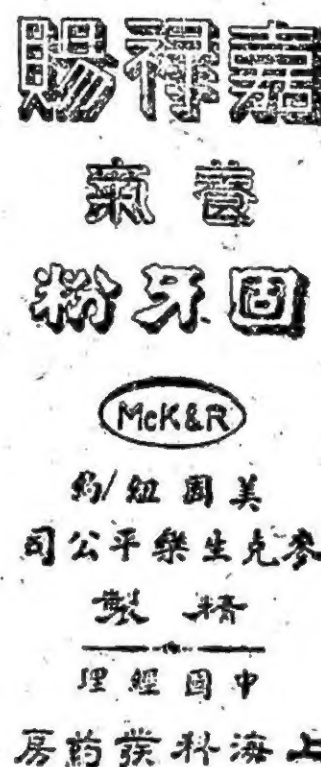 嘉祿賜
養氣
固牙粉
McK&R
美國紐約
麥克生樂平公司
精製
中國經理
上海科發葯房